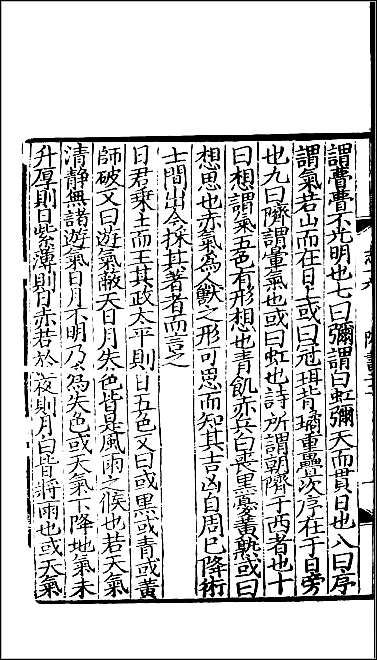 謂瞢瞢不光明也七曰彌謂白虹彌天而貫日也八曰序
謂氣若山而在日上或曰冠珥背璚重疊次序在于日旁
也九曰隮謂暈氣也或曰虹也詩所謂朝隮于西者也十
曰想謂氣五色有形想也青飢赤兵白喪黑憂黃熟或曰
想思也赤氣為人獸之形可思而知其吉凶自周已降術
士間出今採其著者而言之
日君乘土而王其政太平則日五色又曰或黑或青或黃
師破又曰遊氣蔽天日月失色皆是風雨之候也若天氣
清静無諸遊氣日月不明乃為失色或天氣下降地氣未
升厚則日紫薄則日赤若於夜則月白皆將雨也或天氣